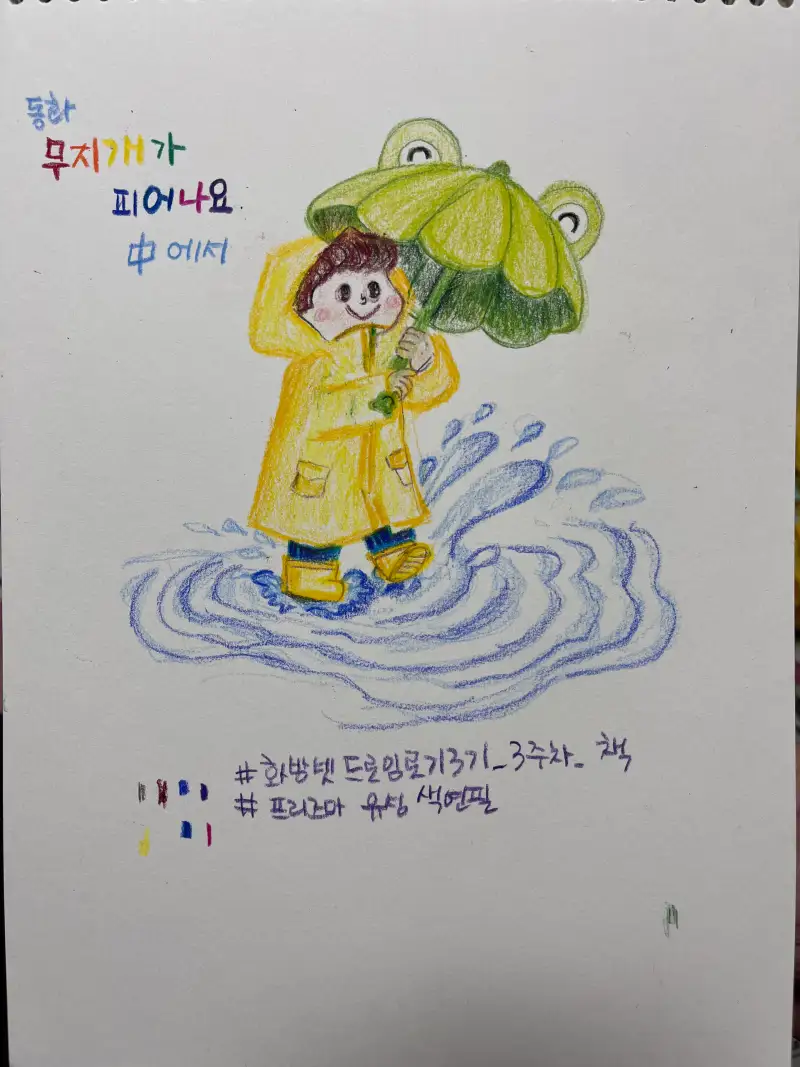 동화
무지개가
피어나요
中에서
#화방넷드로잉로기3기_3주차_책
# 프리즈마 유성 색연필